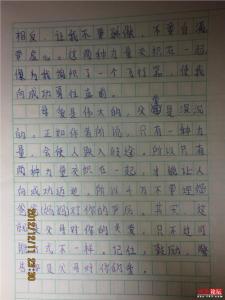 相反，让我不要骄傲，不要自满
带虚心。这两种力量交织在一起
像为我编织了一个飞行器，使我
向成功勇往直前。
母爱是伟大的，父爱是深沉
的。正如作者所说，只有一种力
量，会使人跌入歧途，所以只有
两种力量交织在一起，才能让人
向成功迈进。所以千万不要埋怨
爸爸妈妈对你的严厉。其实，这
就是父母对你的关爱，只不过
形式不一样。记住，鼓励，警
告都是父母对你的爱。
2012/12/11
22:30